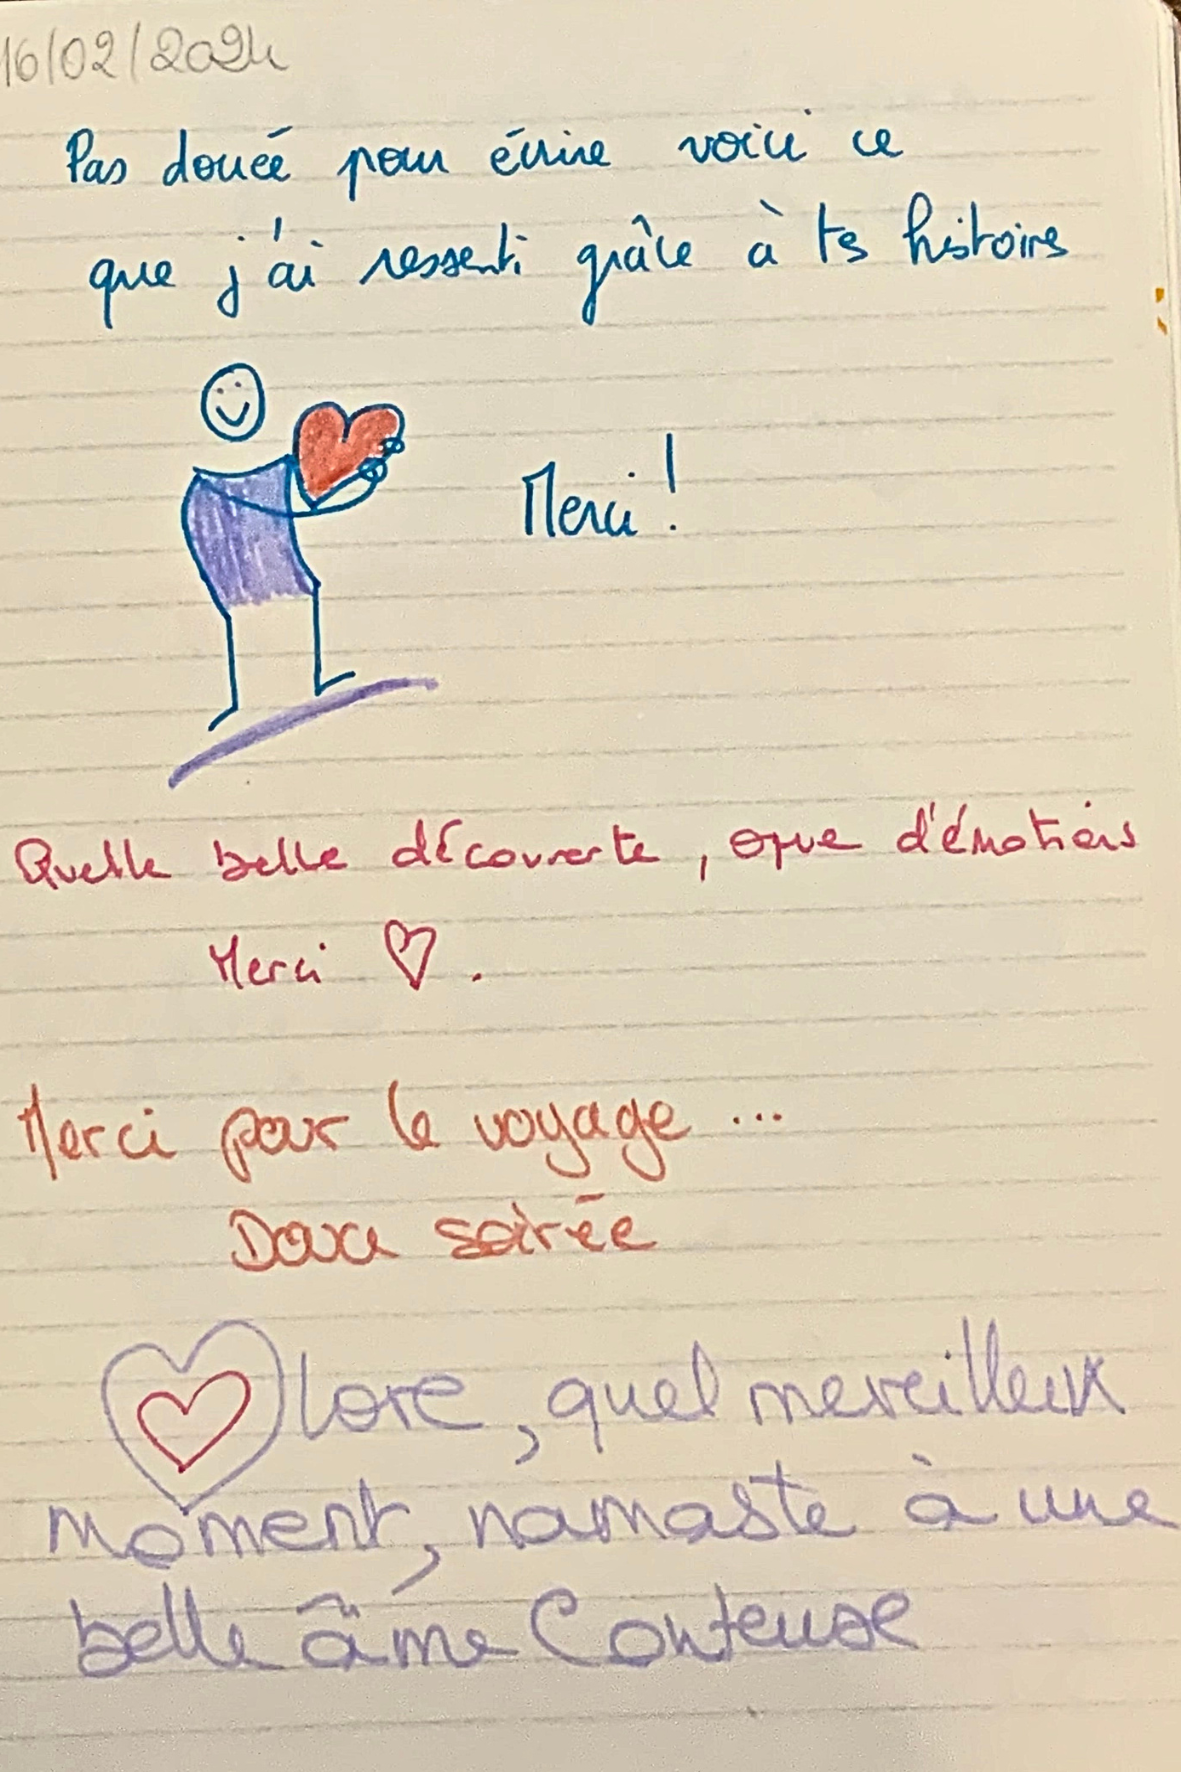 16/02/2024
Pas douée pour écrire voici ce
que j'ai ressenti grâce à tes histoires
Merci !
Quelle belle découverte, que d'émotions
Merci ♡.
Merci pour le voyage ...
Douce soirée
Lore, quel merveilleux
moment, namaste à une
belle âme Conteuse